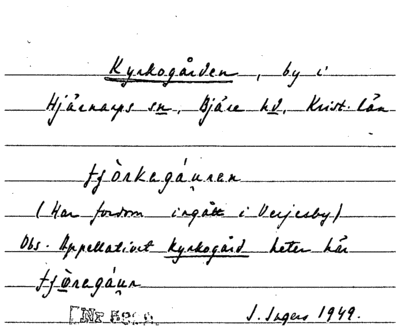 Kyrkogården, by i
Hjärnarps sn, Bjäre hd, Krist. län
fjòrkagáuren
(Har fordom ingått i Verjesby)
Obs. Appellativet kyrkogård heter här
fjòregáur
I. Ingers 1949.